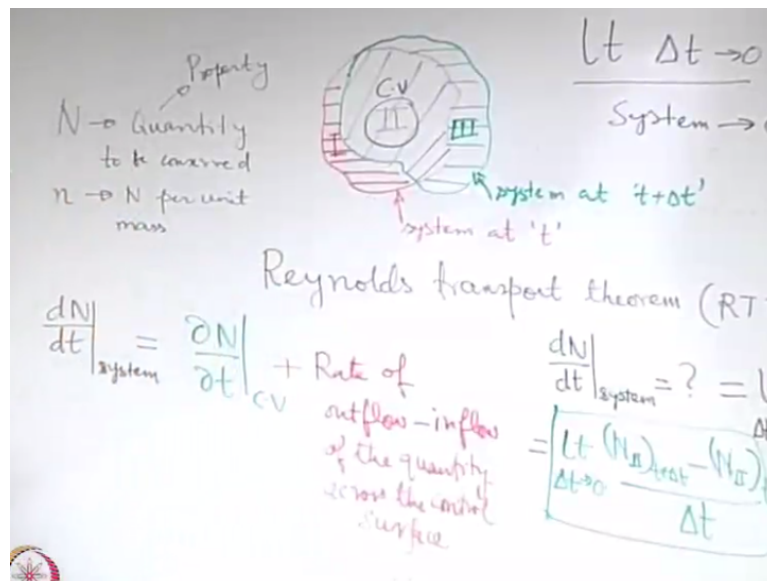 Property
N → Quantity
to be conserved
n → N per unit
mass
C.V
I
II
III
system at 't+Δt'
system at 't'
lt Δt→0
System →
Reynolds transport theorem (RT
dN/dt|system = ∂N/∂t|CV + Rate of
outflow-inflow
of the quantity
across the control
surface
dN/dt|system = ? =
= lt Δt→0 (NII)t+Δt − (NII)t / Δt